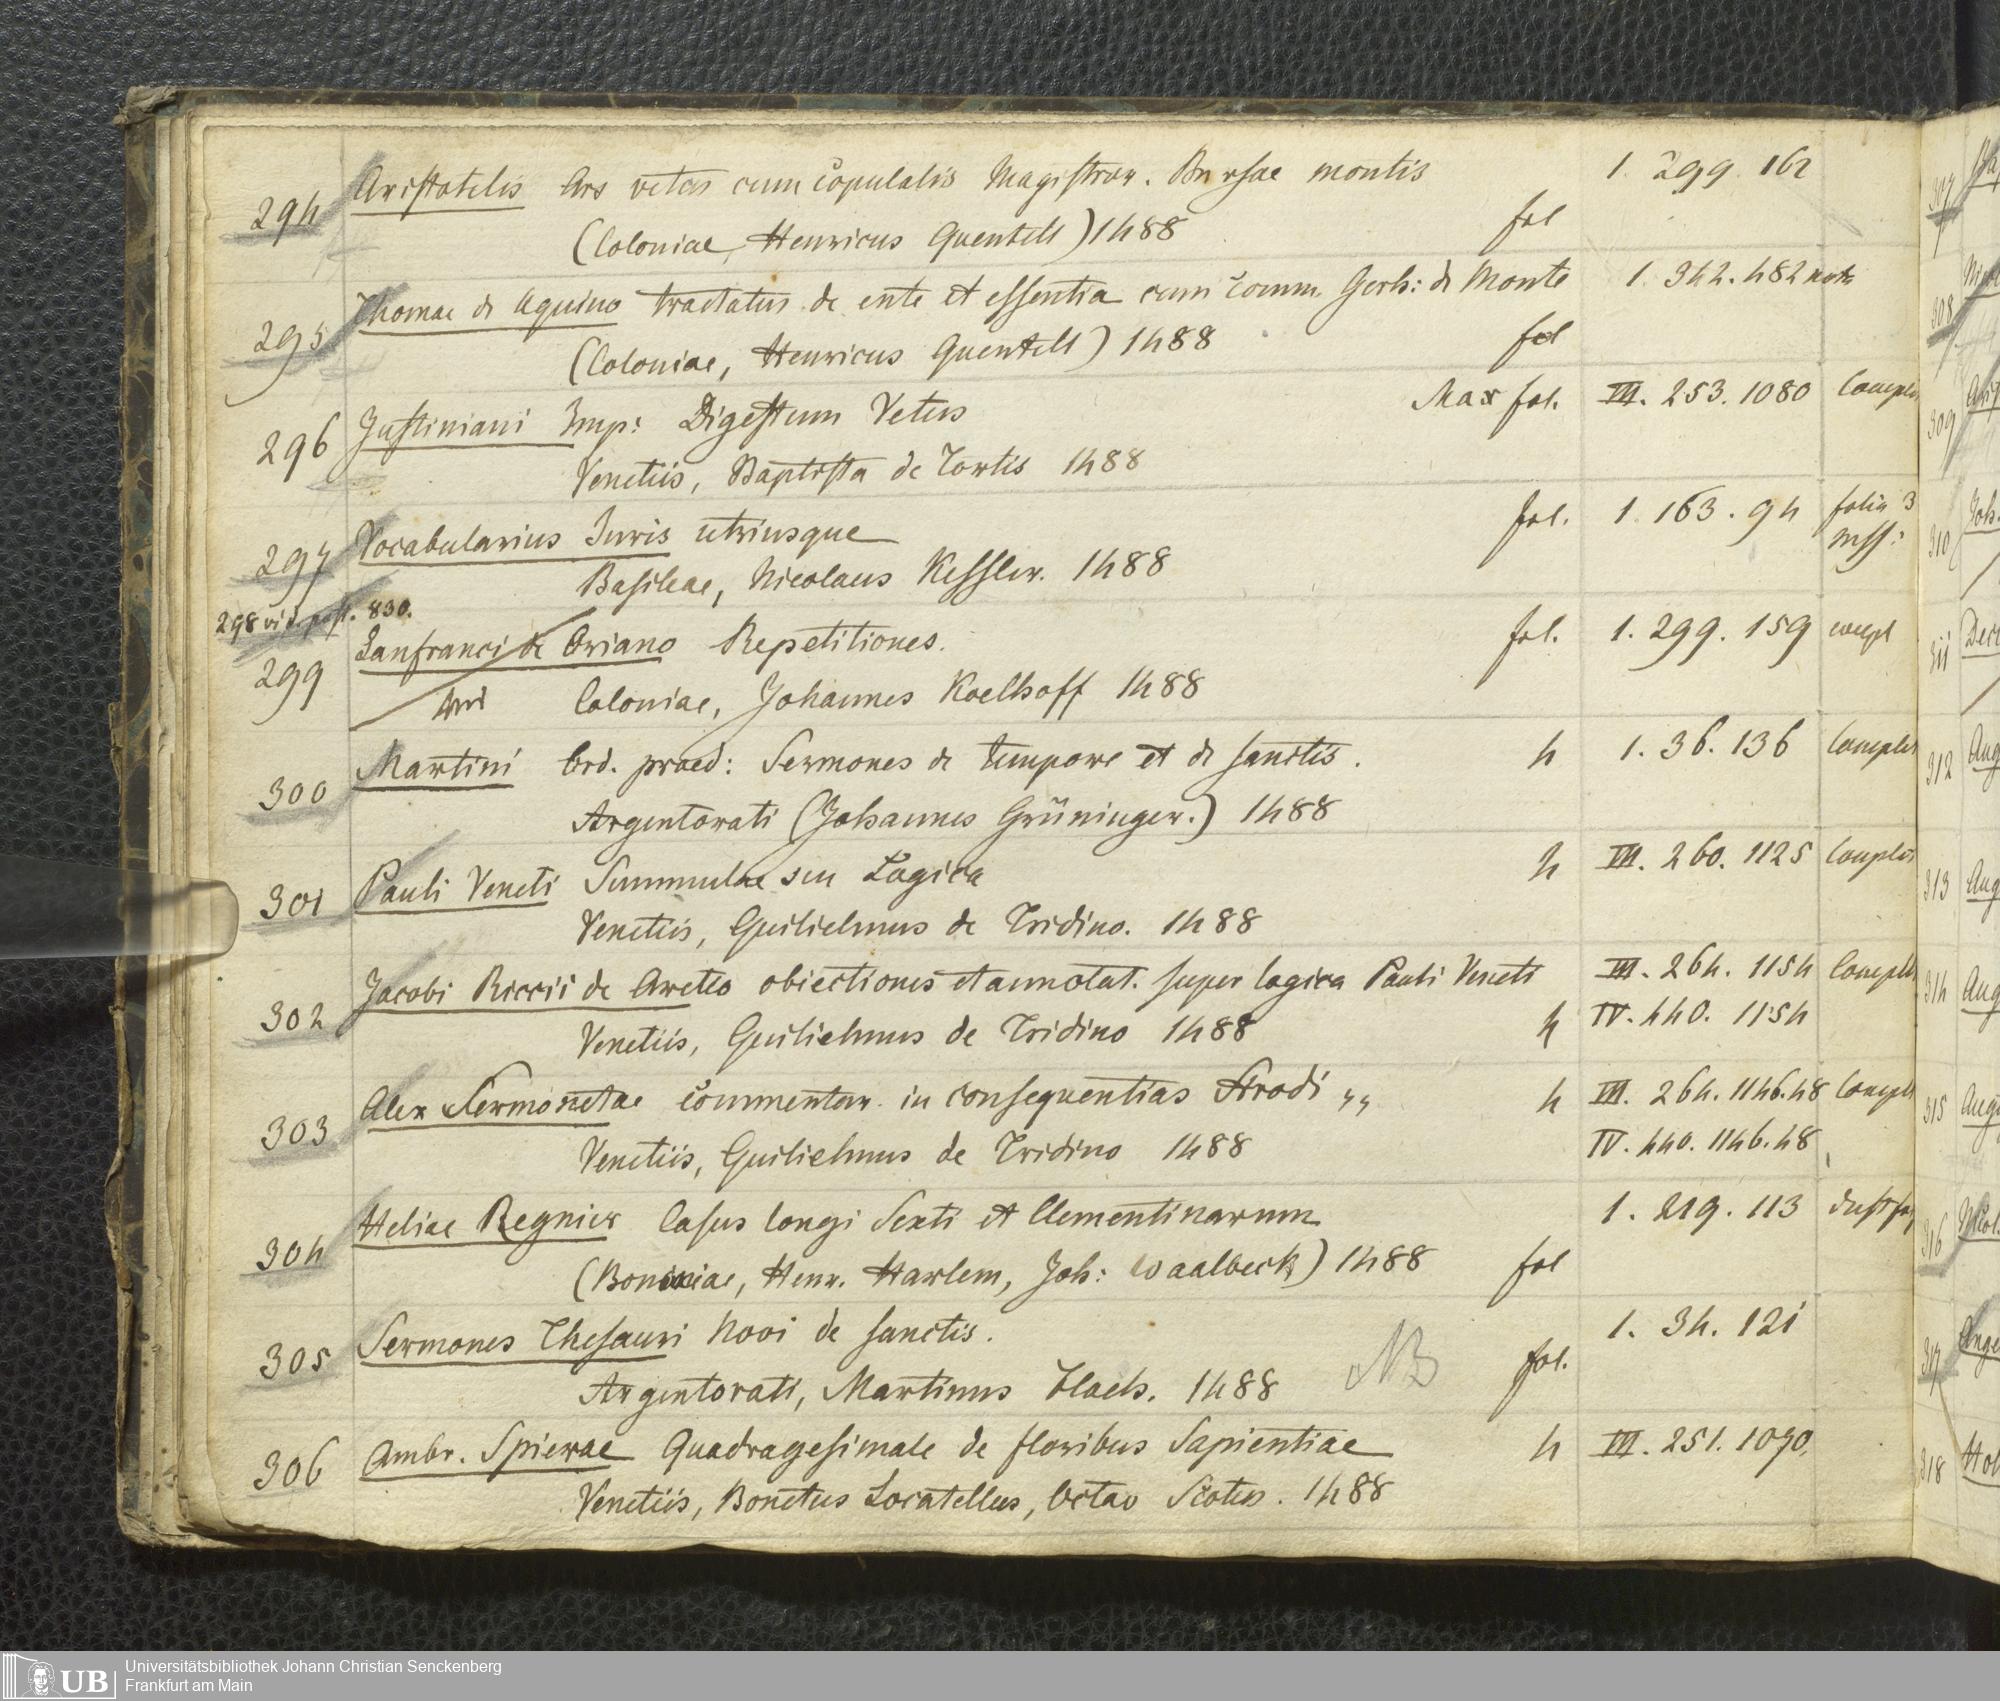 294 Aristotelis Ars vetus cum Copulatis Magistror. Bursae montis 1. 299. 162
(Coloniae, Henricus Quentell) 1488 fol
295 Thomae de Aquino tractatus de ente et essentia cum Comm. Gerh: de Monte 1. 342. 482
(Coloniae, Henricus Quentell) 1488 fol
296 Justiniani Imp: Digestum Vetus Max fol. III. 253. 1080
Venetiis, Baptista de Tortis 1488
297 Vocabularius Iuris utriusque fol. 1. 163. 94 folia 3
Basileae, Nicolaus Kessler. 1488 mss:
298 vid. post. 830.
299 Lanfranci de Oriano Repetitiones. fol. 1. 299. 159 compl
Coloniae, Johannes Koelhoff 1488
300 Martini Ord. praed: Sermones de tempore et de sanctis. 4 1. 36. 136
Argentorati (Johannes Grüninger.) 1488
301 Pauli Veneti Summulae seu Logica 4 III. 260. 1125
Venetiis, Guilielmus de Tridino. 1488
302 Jacobi Riccii de Aretio obiectiones et annotat. super logica Pauli Veneti III. 264. 1154
Venetiis, Guilielmus de Tridino 1488 4 IV. 440. 1154
303 Alex Sermonetae commentar. in consequentias Strodi 4 III. 264. 1146.48
Venetiis, Guilielmus de Tridino 1488 IV. 440. 1146.48
304 Heliae Regnier Casus longi Sexti et Clementinarum 1. 219. 113
(Bononiae, Henr. Harlem, Joh: Waalbeck) 1488 fol
305 Sermones Thesauri Novi de sanctis. 1. 34. 121
Argentorati, Martinus Flach. 1488 NB fol.
306 Ambr. Spierae Quadragesimale de floribus Sapientiae 4 III. 251. 1070.
Venetiis, Bonetus Locatellus, Octav Scotus. 1488
307
308
309
310
311
312 Aug
313 Aug
314 Aug
315 Aug
316
317
318
UB
Universitätsbibliothek Johann Christian Senckenberg
Frankfurt am Main